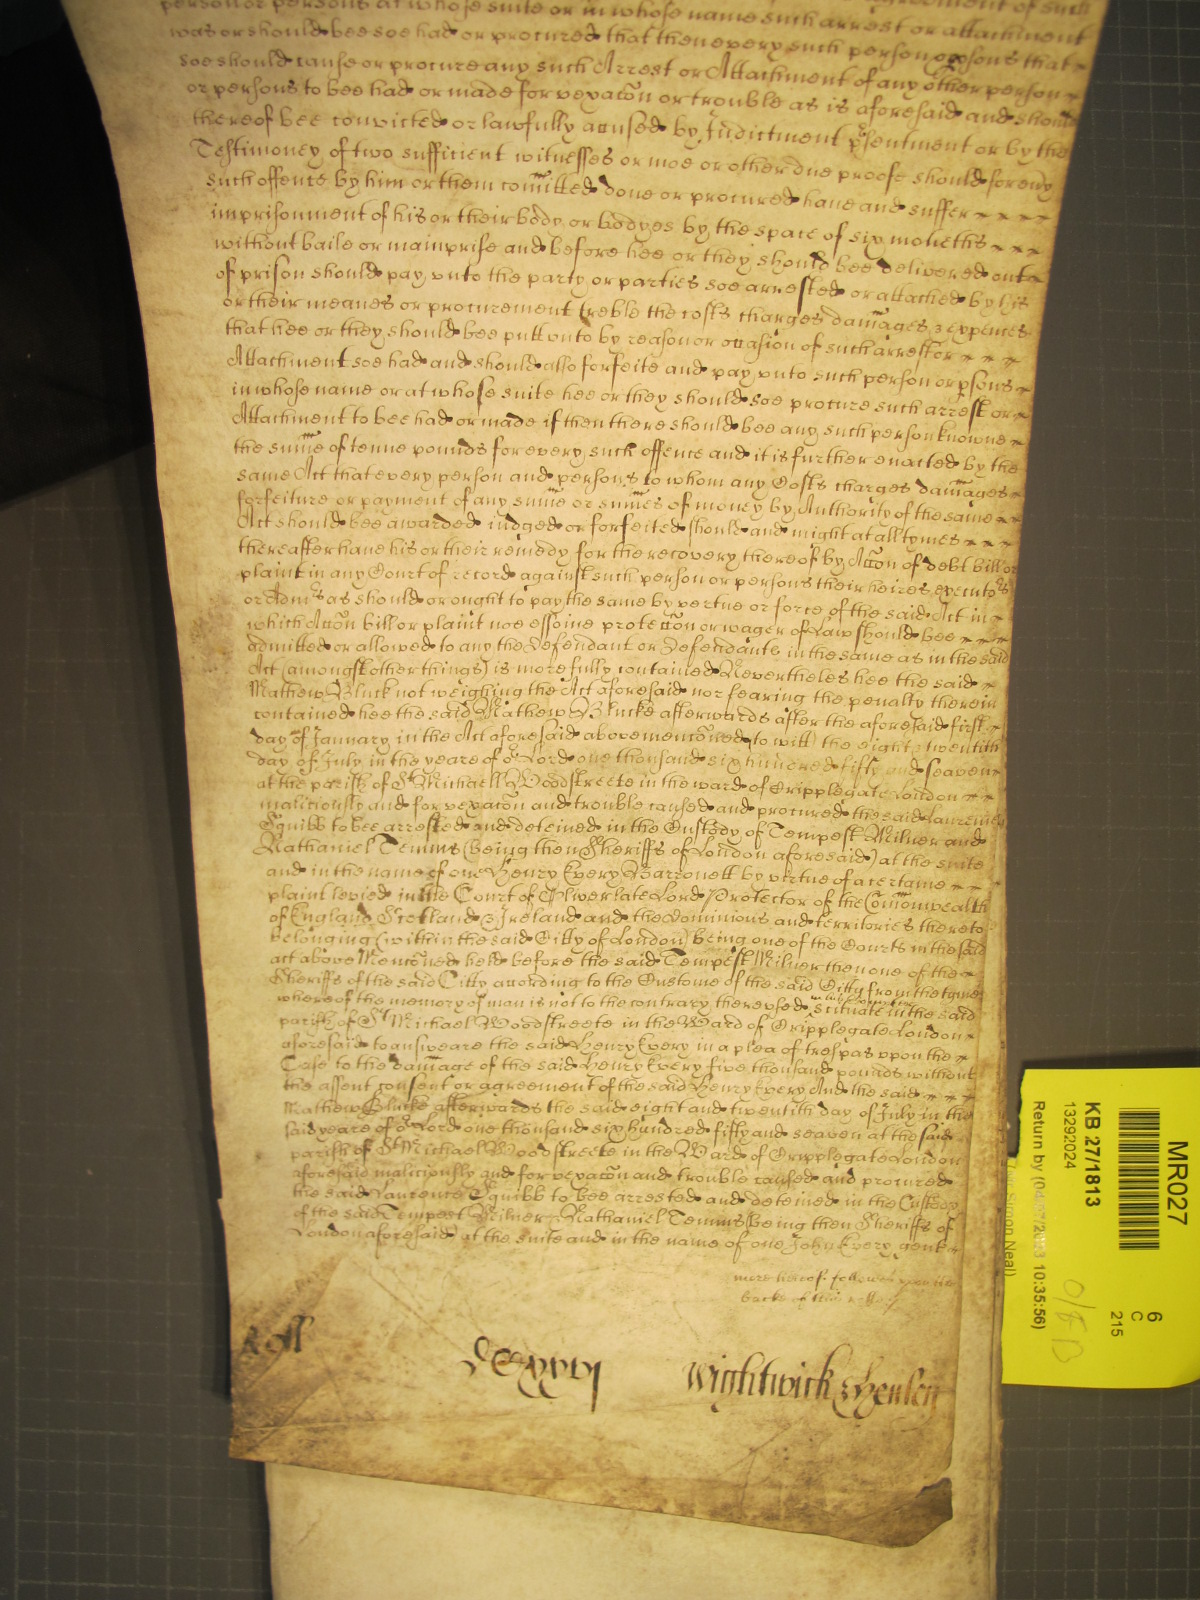 person or persons at whose suite or in whose name such arrest or attachment
was or should bee soe had or procured that then every such person or psons that
soe should cause or procure any such Arrest or Attachment of any other person
or persons to bee had or made for vexacon or trouble as is aforesaid and should
thereof bee convicted or lawfully accused by Indictment psentment or by the
Testimoney of two sufficient witnesses or moe or other due proofe should for evy
such offence by him or them comitted done or procured have and suffer
imprisonment of his or their body or bodyes by the space of six moneths
without baile or mainprise and before hee or they should bee delivered out
of prison should pay unto the party or parties soe arrested or attached by his
or their meanes or procurement treble the costs charges damages & expences
that hee or they should bee putt unto by reason or occasion of such arrest or
Attachment soe had and should also forfeite and pay unto such person or psons
in whose name or at whose suite hee or they should soe procure such arrest or
Attachment to bee had or made if then there should bee any such person knowne
the sume of tenne pounds for every such offence and it is further enacted by the
same Act that every person and persons to whom any Costs charges damages
forfeiture or payment of any sume or sumes of money by Authority of the same
Act should bee awarded iudged or forfeited should and might at all tymes
thereafter have his or their remedy for the recovery thereof by Accon of debt bill or
plaint in any Court of record against such person or persons their heires executors
or Admrs as should or ought to pay the same by vertue or force of the said Act in
which Accon bill or plaint noe essoine proteccon or wager of Law should bee
admitted or allowed to any the Defendant or Defendants in the same as in the said
Act (amongst other things) is more fully contained Nevertheles hee the said
Mathew Bluck not weighing the Act aforesaid nor fearing the penalty therein
contained hee the said Mathew Blucke afterwards after the aforesaid first
day of January in the Act aforesaid above menconed to witt the eight & twentith
day of July in the yeare of or Lord one thousand six hundred fifty and seaven
at the parish of St Michaell Woodstreete in the ward of Cripplegate London
maliciously and for vexacon and trouble caused and procured the said Laurence
Squibb to bee arrested and deteined in the Custody of Tempest Milner and
Nathaniel Temms (being then Sheriffs of London aforesaid) at the suite
and in the name of one Henry Every Barronett by virtue of a certaine
plaint levied in the Court of Oliver late Lord Protector of the Comonwealth
of England Scotland & Ireland and the dominions and territories thereto
belonging (within the said Citty of London) being one of the Courts in the said
act above Menconed held before the said Tempest Milner then one of the
Sheriffs of the said Citty according to the Custome of the said Citty from the tyme
whereof the memory of man is not to the contrary thereused scituate in the said
parish of St Michael Woodstreete in the Ward of Cripplegate London
aforesaid to answeare the said Henry Every in a plea of trespas upon the
Case to the damage of the said Henry Every five thousand pounds without
the assent consent or agreement of the said Henry Every And the said
Mathew Blucke afterwards the said eight and twentith day of July in the
said yeare of or Lord one thousand six hundred fifty and seaven at the said
parish of St Michael Woodstreete in the Ward of Cripplegate London
aforesaid maliciously and for vexacon and trouble caused and procured
the said Laurence Squibb to bee arrested and deteined in the Custody
of the said Tempest Milner Nathaniel Temms (being then Sheriffs of
London aforesaid) at the suite and in the name of one John Every gent
more hereof followes upon the
backe of this roll
Roll
Wightwick & Henley
MR027
6
C
215
KB 27/1813
13292024
10:35:56)
Simon Neal)